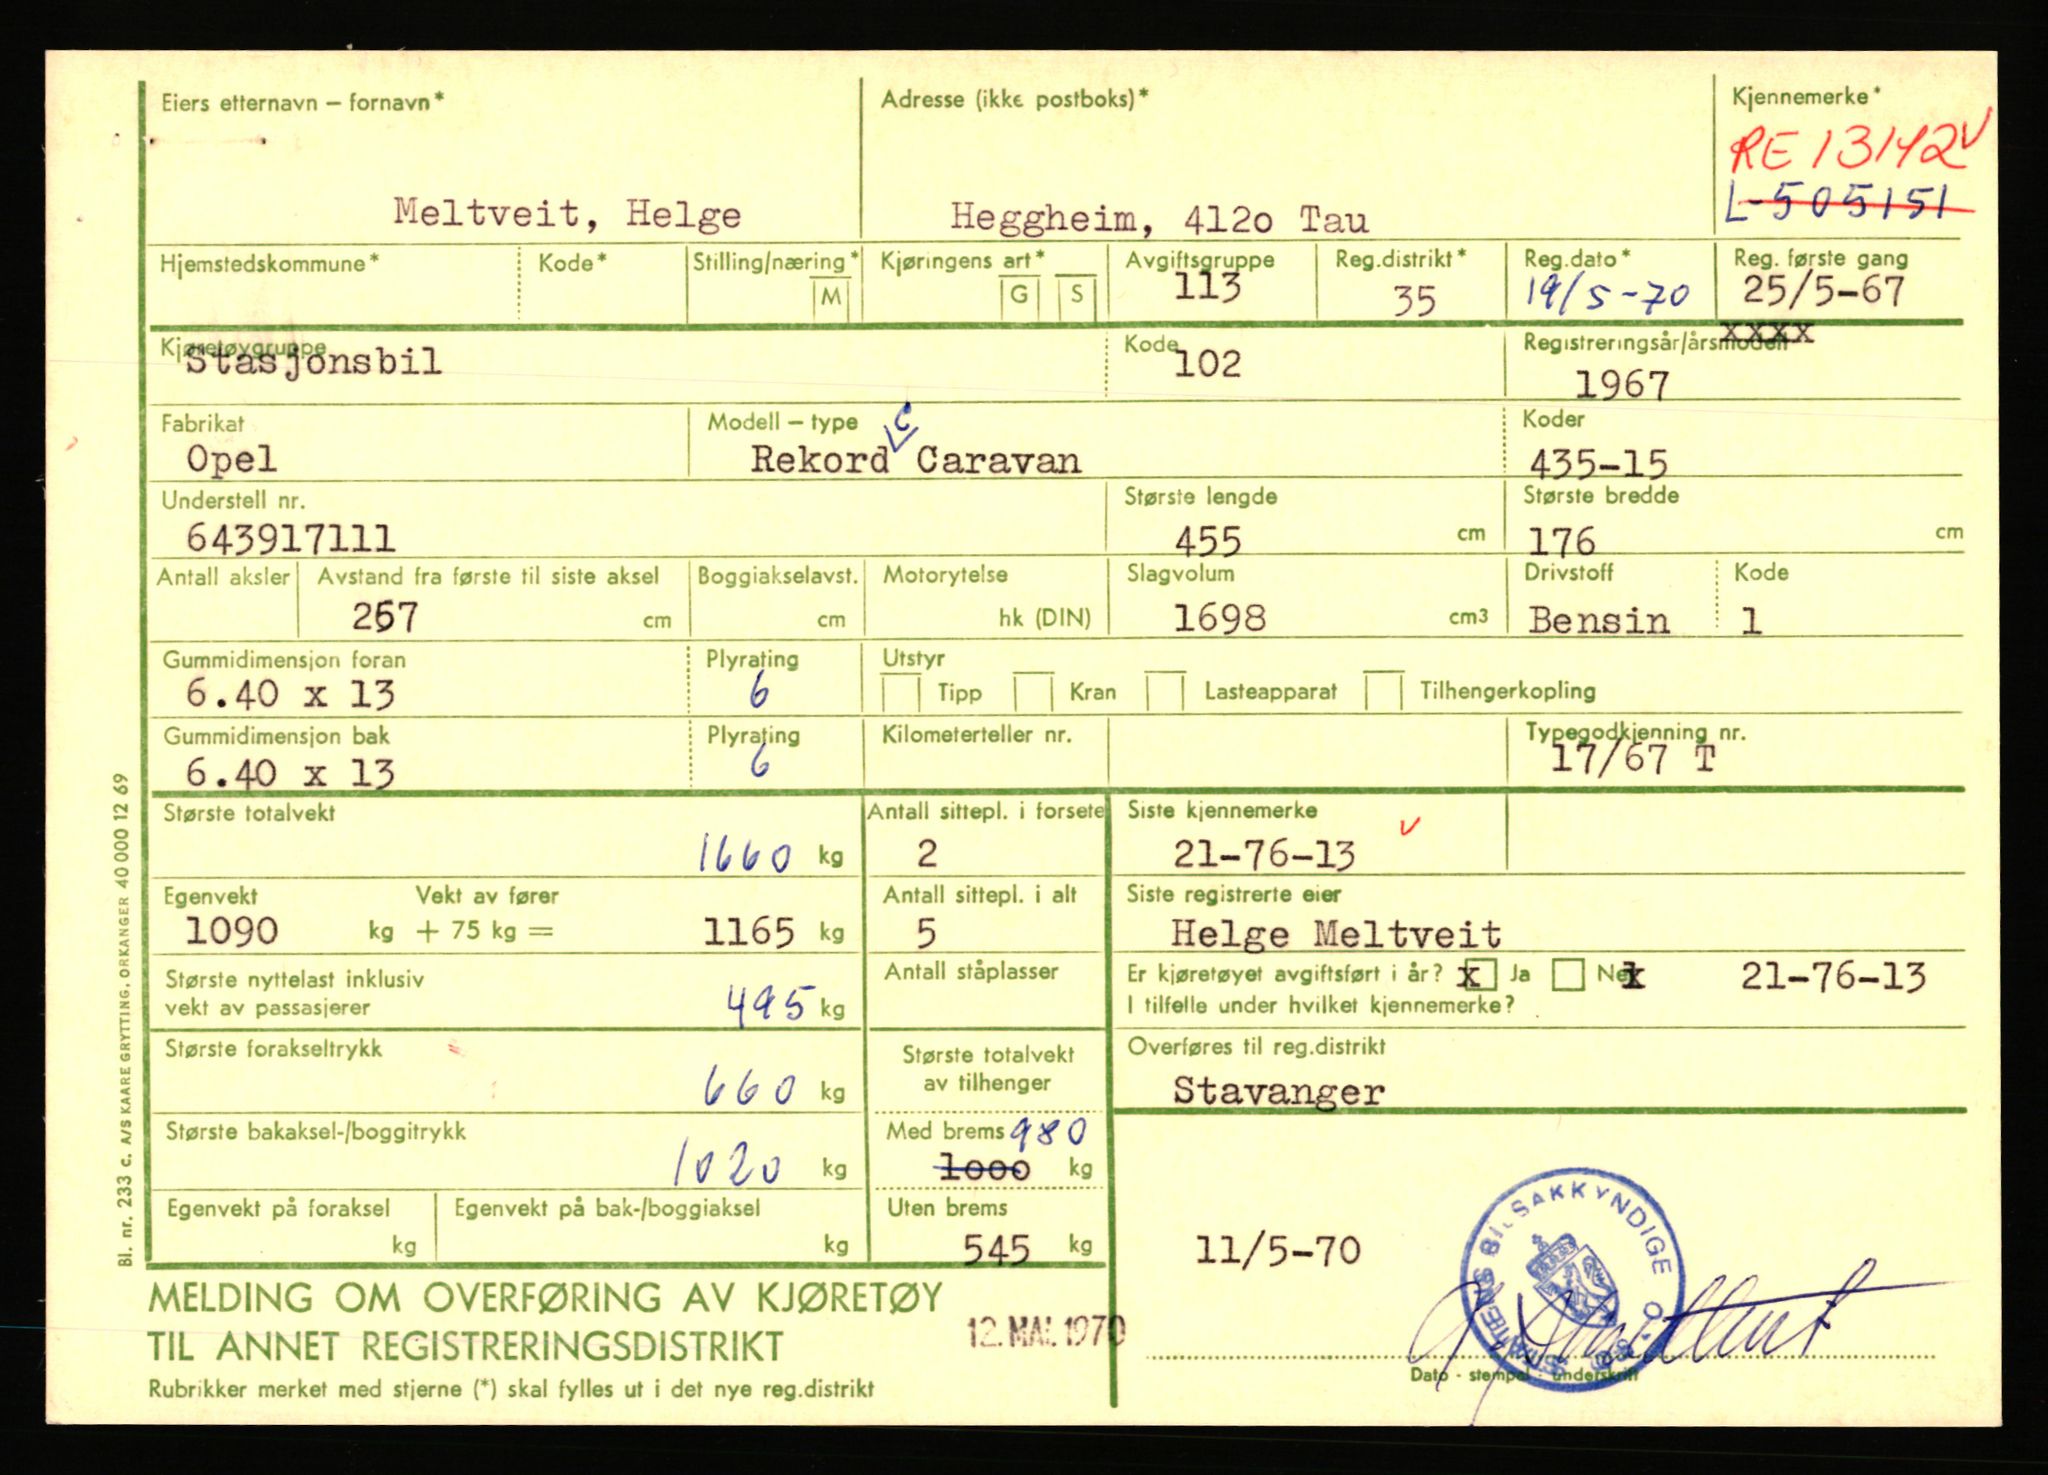 Eiers etternavn – fornavn*
Adresse (ikke postboks)*
Kjennemerke*
RE 13142 v
Meltveit, Helge
Heggheim, 412o Tau
L-505151
Hjemstedskommune*
Kode*
Stilling/næring*
M
Kjøringens art*
G
S
Avgiftsgruppe
113
Reg.distrikt*
35
Reg.dato*
19/5-70
Reg. første gang
25/5-67
Kjøretøygruppe
Stasjonsbil
Kode
102
Registreringsår/årsmodell
xxxx
1967
Fabrikat
Opel
Modell – type
Rekord C Caravan
Koder
435-15
Understell nr.
643917111
Største lengde
455 cm
Største bredde
176 cm
Antall aksler
Avstand fra første til siste aksel
267 cm
Boggiakselavst.
cm
Motorytelse
hk (DIN)
Slagvolum
1698 cm3
Drivstoff
Bensin
Kode
1
Gummidimensjon foran
6.40 x 13
Plyrating
6
Utstyr
Tipp
Kran
Lasteapparat
Tilhengerkopling
Gummidimensjon bak
6.40 x 13
Plyrating
6
Kilometerteller nr.
Typegodkjenning nr.
17/67 T
Største totalvekt
1660 kg
Antall sittepl. i forsete
2
Siste kjennemerke
21-76-13 v
Egenvekt
Vekt av fører
1090 kg + 75 kg = 1165 kg
Antall sittepl. i alt
5
Siste registrerte eier
Helge Meltveit
Største nyttelast inklusiv
vekt av passasjerer
495 kg
Antall ståplasser
Er kjøretøyet avgiftsført i år? x Ja Nei x 21-76-13
I tilfelle under hvilket kjennemerke?
Største forakseltrykk
660 kg
Største totalvekt
av tilhenger
Overføres til reg.distrikt
Stavanger
Største bakaksel-/boggitrykk
1020 kg
Med brems 980
1000 kg
Egenvekt på foraksel
kg
Egenvekt på bak-/boggiaksel
kg
Uten brems
545 kg
11/5-70
STATENS BILSAKKYNDIGE
MELDING OM OVERFØRING AV KJØRETØY
TIL ANNET REGISTRERINGSDISTRIKT
12. MAI. 1970
Rubrikker merket med stjerne (*) skal fylles ut i det nye reg.distrikt
Dato - stempel - underskrift
Bl. nr. 233 c. A/S KAARE GRYTTING, ORKANGER 40 000 12 69